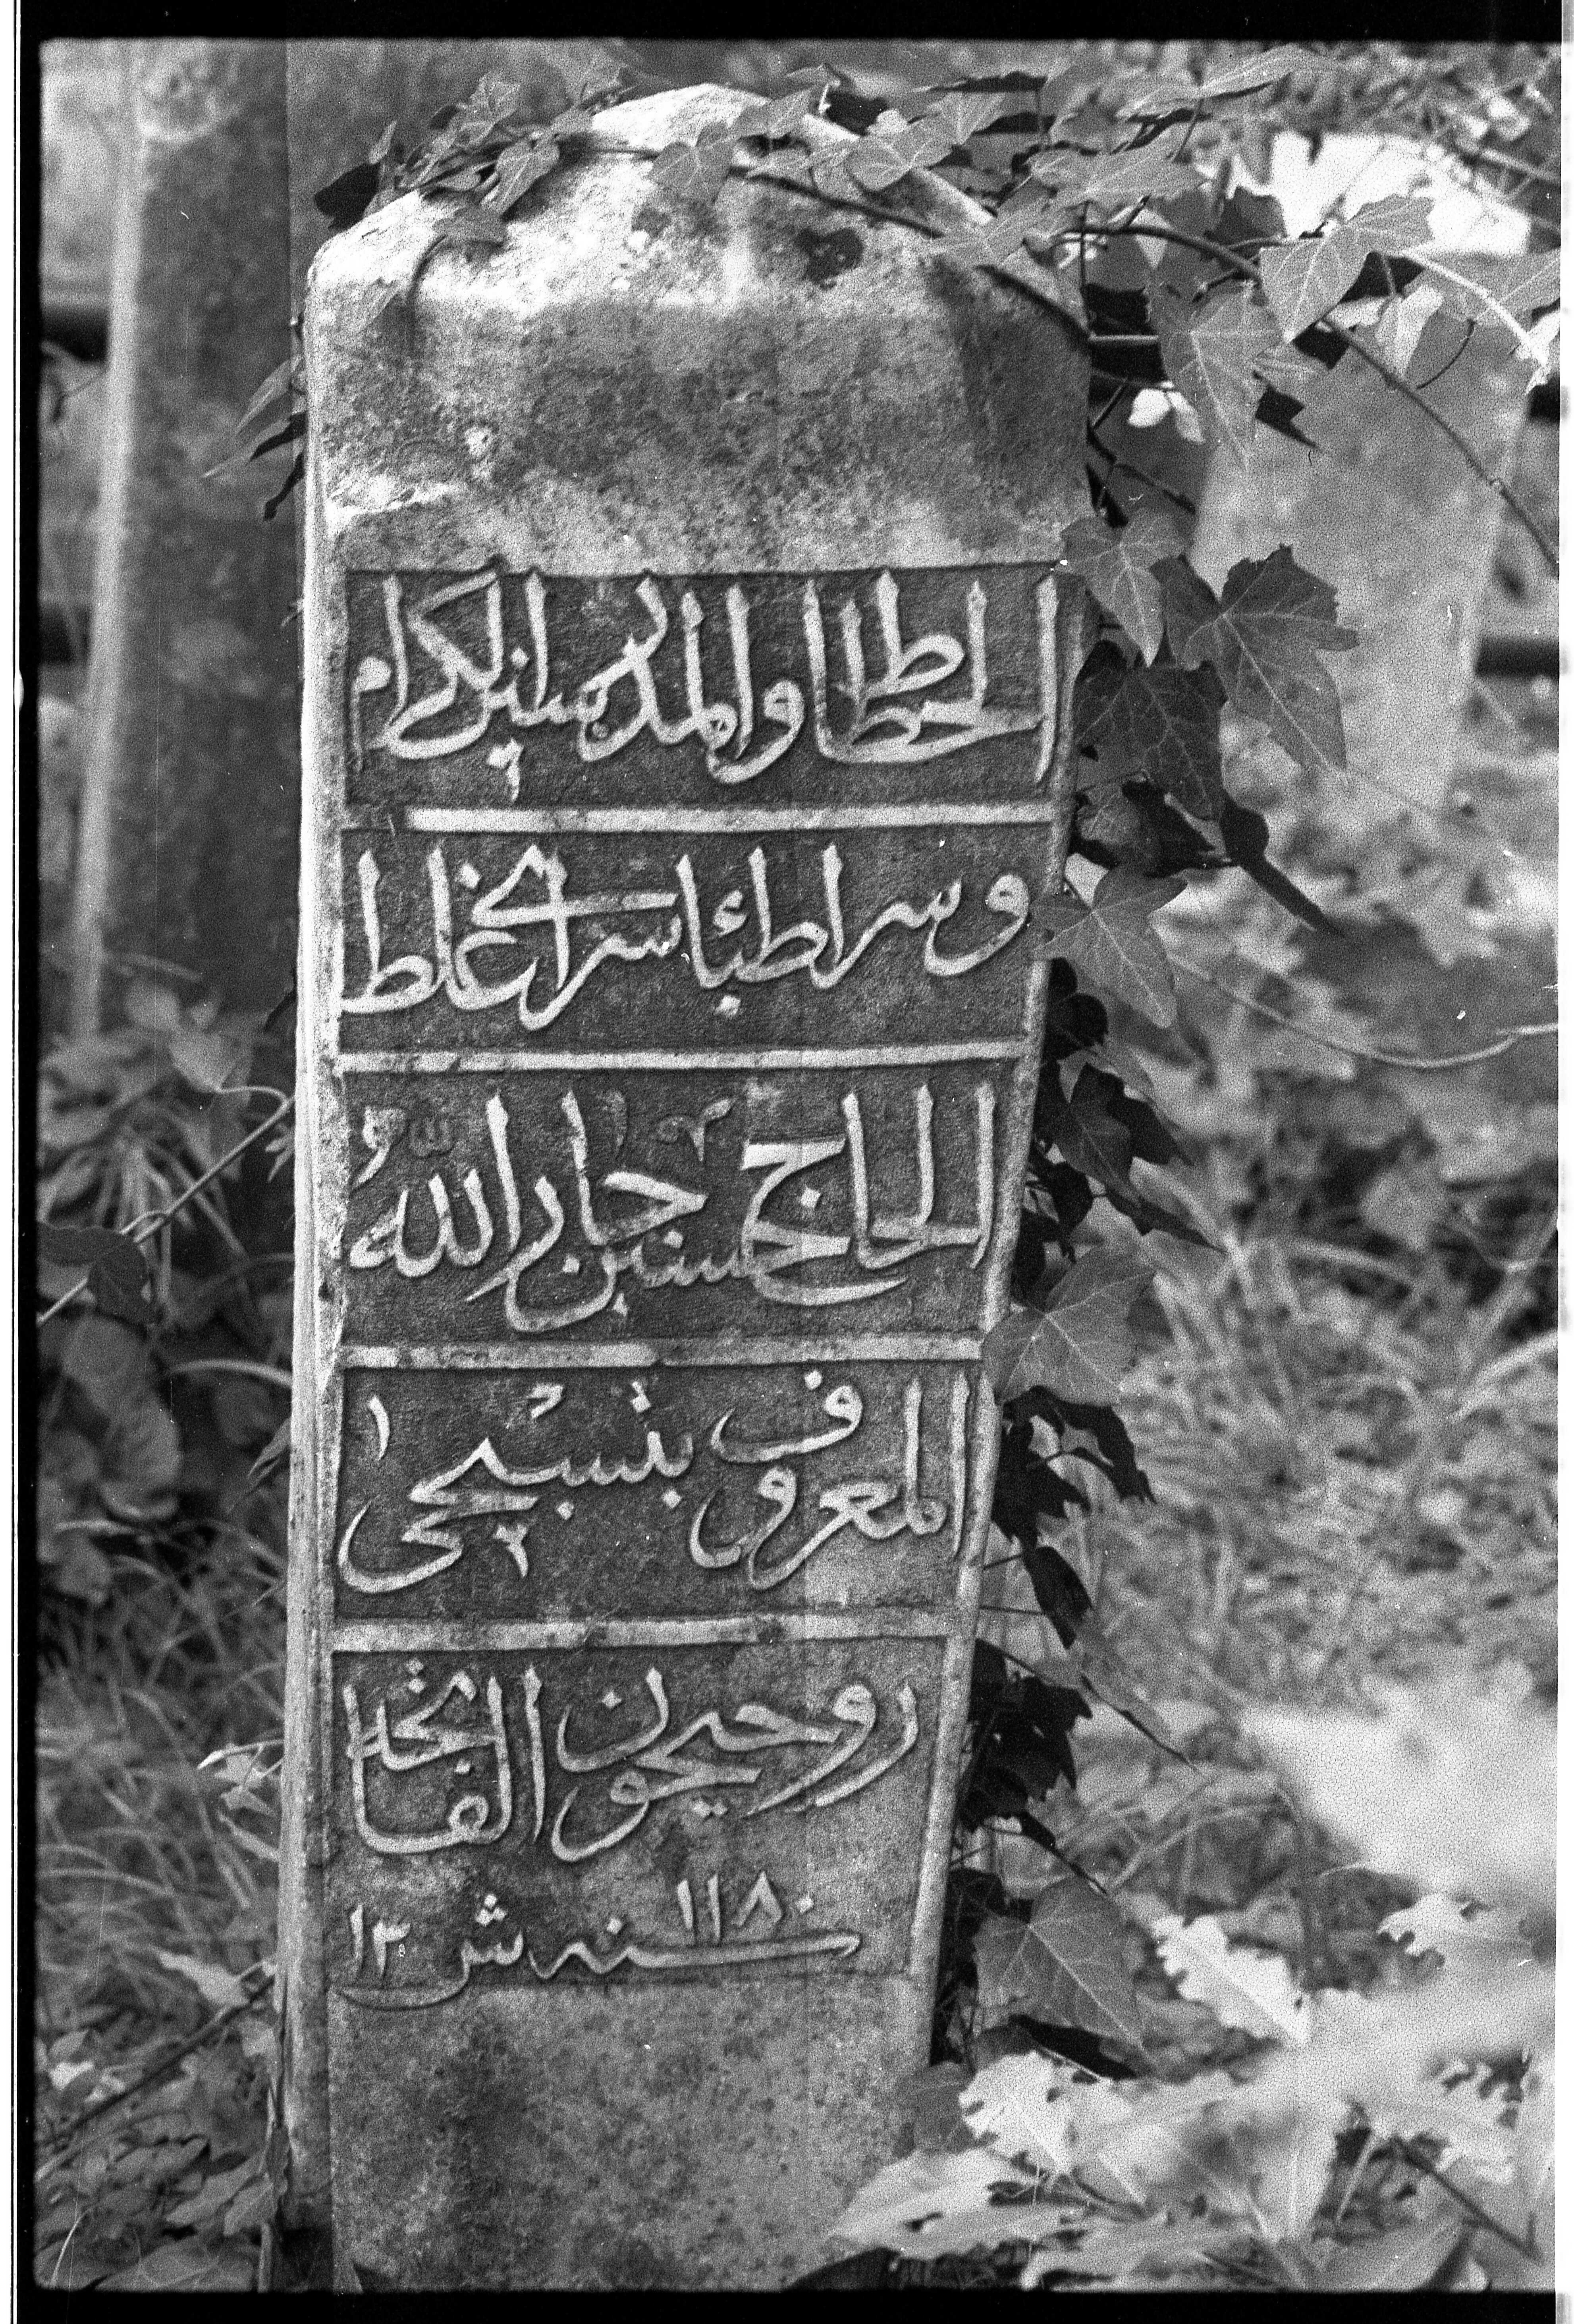 الخطاط والمدرسين الكرام
وسر
الحاج حسن بن جار الله
المعروف بتسبيحى
روحيچون الفاتحه
سنه ١١٨٠ ش ١٣